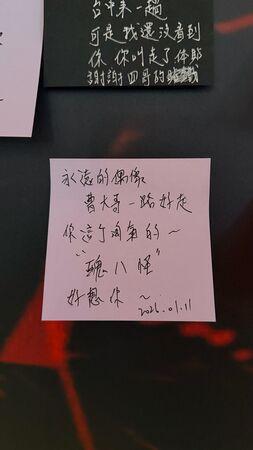 台中來一趟
可是我還沒看到
你 你叫走了体貼
謝謝四哥的
永遠的偶像
曹大哥一路好走
你這个淘氣的～
"醜八怪"
好想你～
2026.01.11